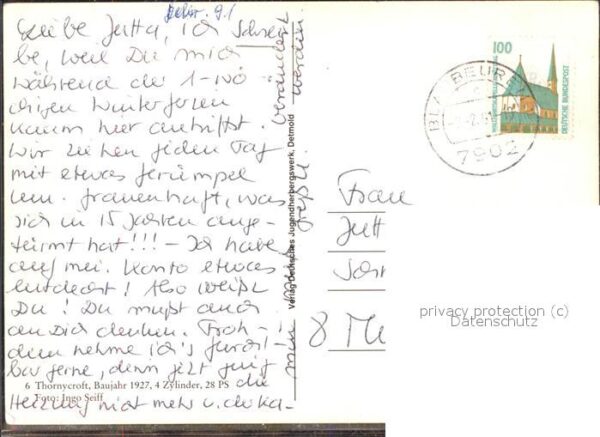 Febr. 91
Liebe Jutta, ich schrei-
be, weil Du mich
während der 1-wö-
chigen Winterferien
kaum hier antriffst.
Wir ziehen jeden Tag
mit etwas Gerümpel
um. Grauenhaft, was
sich in 15 Jahren ange-
türmt hat!!! – Ich habe
auf mei. Konto etwas
entdeckt! Also weißt
Du! Du mußt auch
an Dich denken. Trotz-
dem nehme ich's furcht-
bar gerne, denn jetzt ging
die
Heizung nicht mehr u. die Ka-
verändert
werden.
Gruß
6 Thornycroft, Baujahr 1927, 4 Zylinder, 28 PS
Foto: Ingo Seiff
Verlag Deutsches Jugendherbergswerk, Detmold
100
DEUTSCHE BUNDESPOST
BLAUBEUREN
7902
Frau
Jutt
8 Mü
privacy protection (c)
Datenschutz